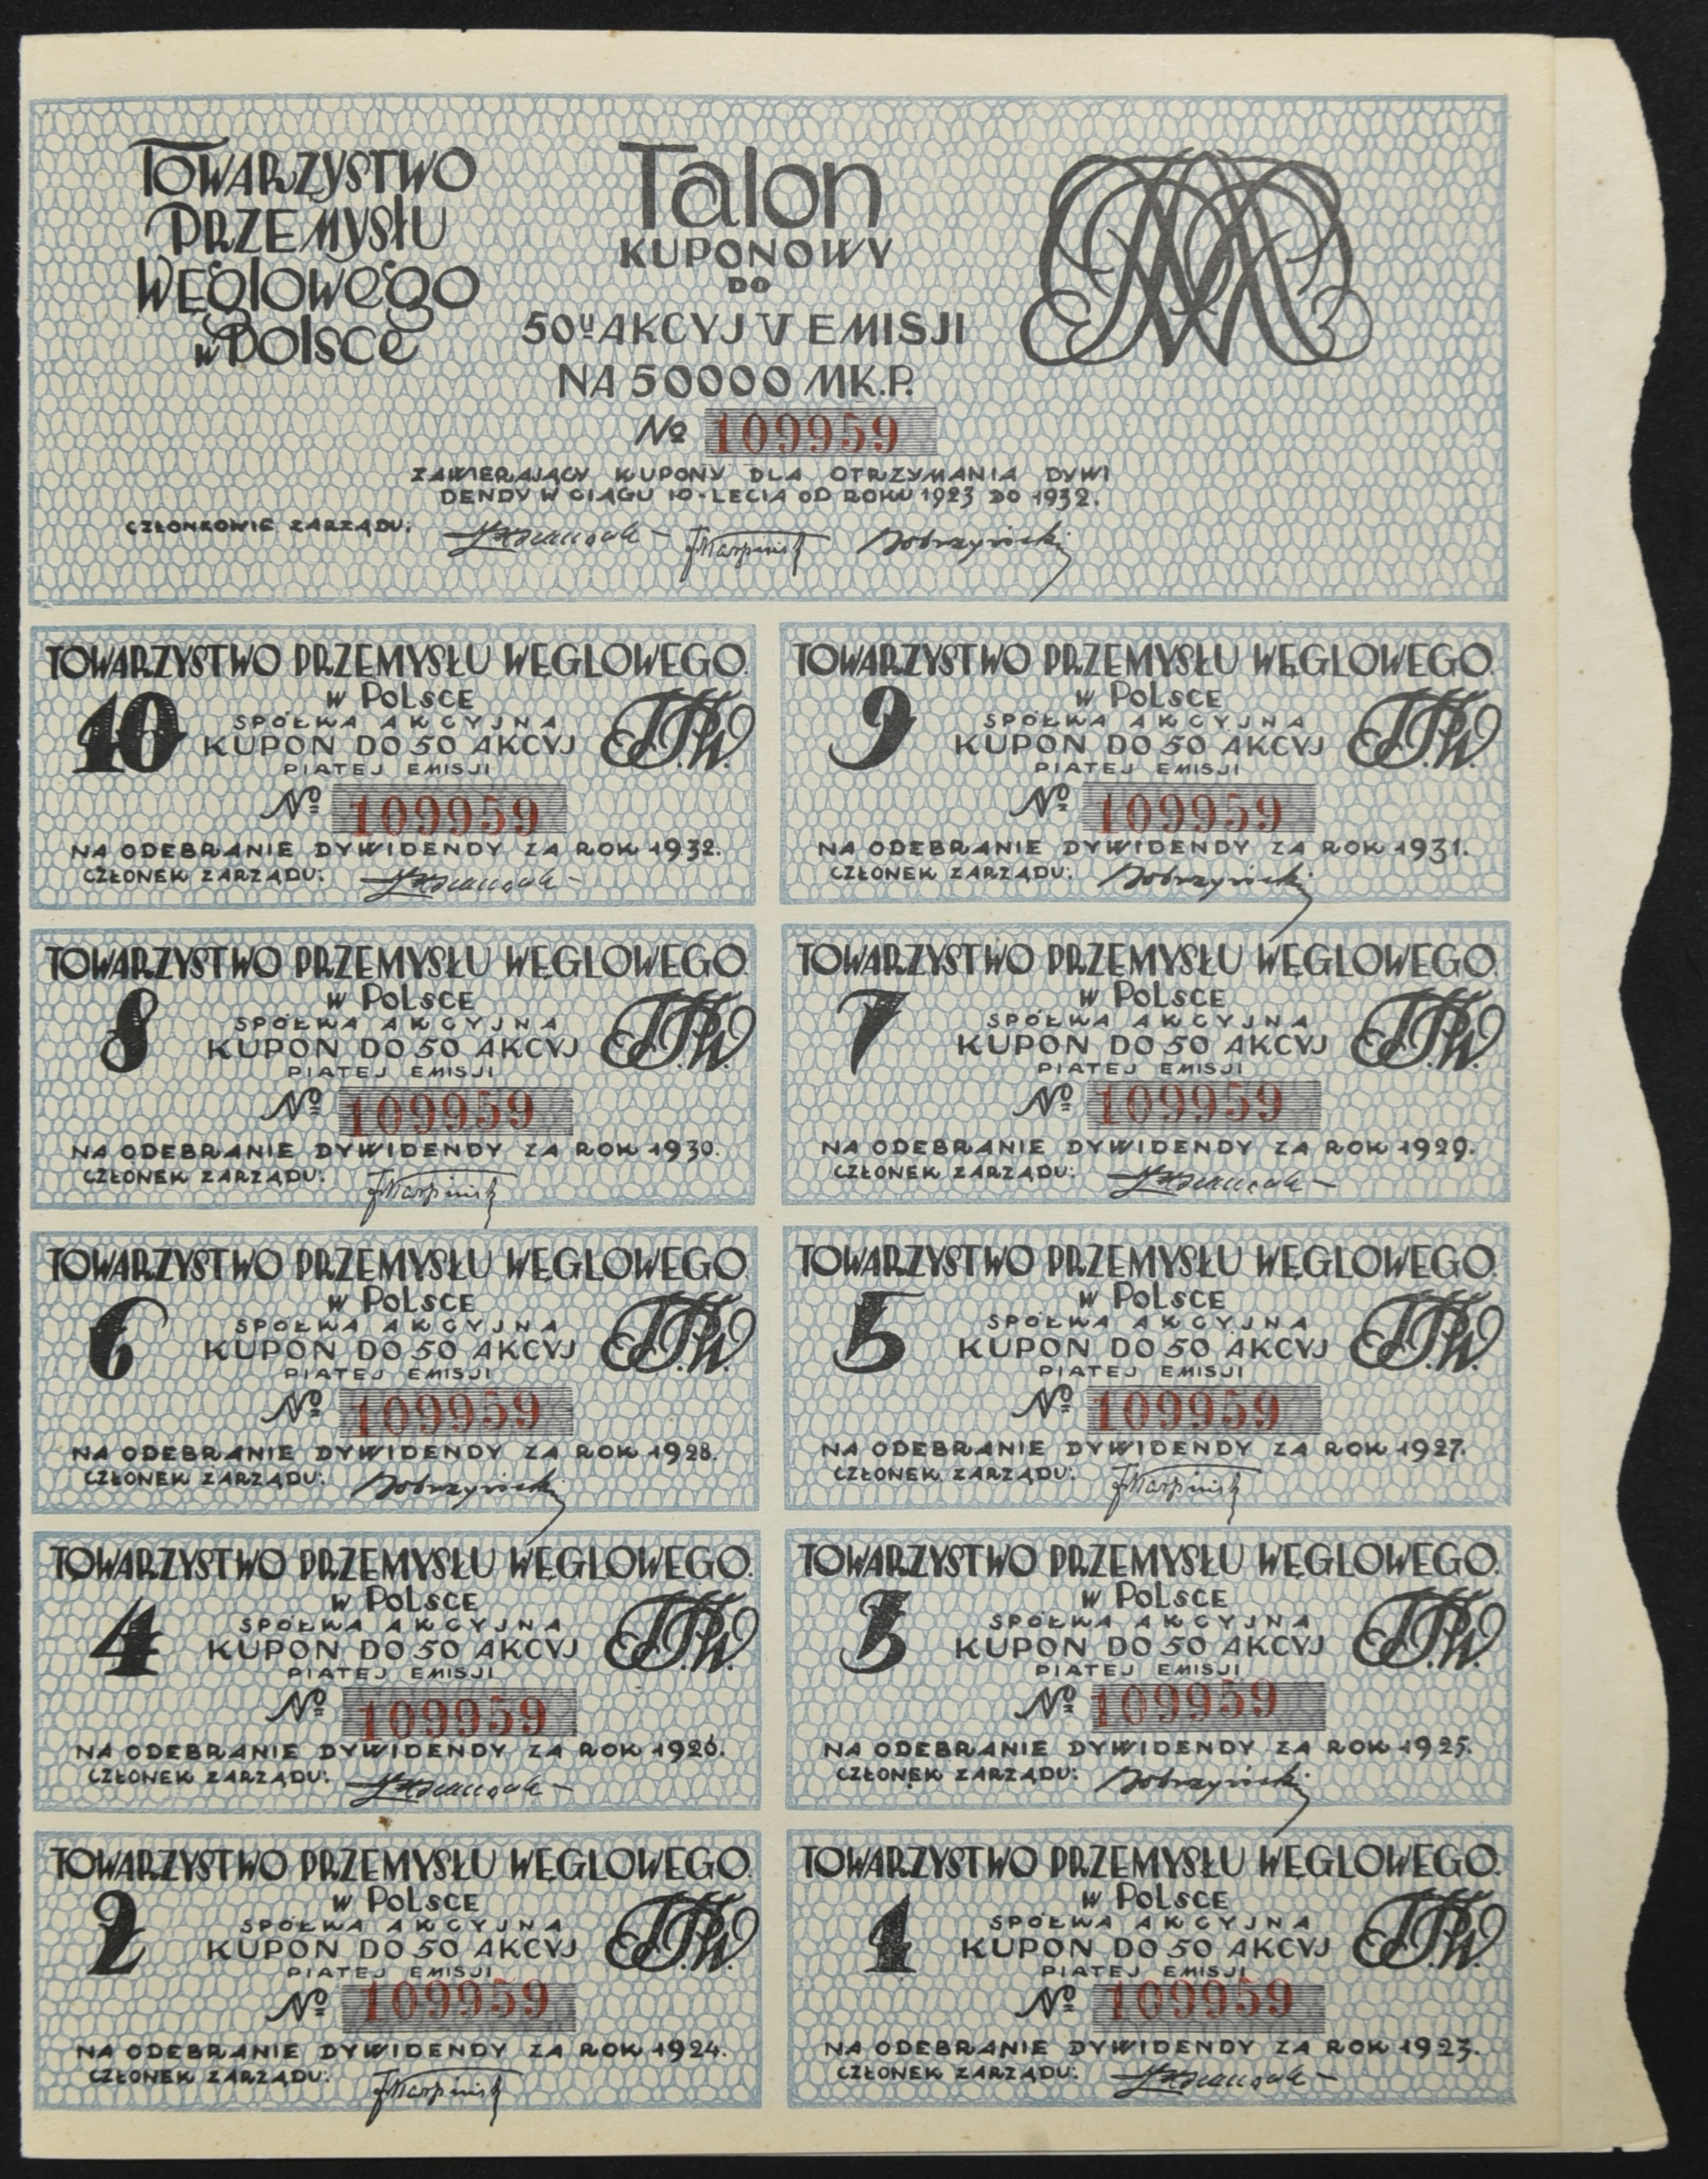 TOWARZYSTWO
PRZEMYSŁU
WĘGLOWEGO
W POLSCE
Talon
KUPONOWY
DO
50U AKCYJ V EMISJI
NA 50000 MK.P.
No 109959
ZAWIERAJĄCY KUPONY DLA OTRZYMANIA DYWI
DENDY W CIĄGU 10-LECIA OD ROKU 1923 DO 1932.
CZŁONKOWIE ZARZĄDU: JKarpiński Dobrzyński
TOWARZYSTWO PRZEMYSŁU WĘGLOWEGO.
W POLSCE
10
SPÓŁKA AKCYJNA
KUPON DO 50 AKCYJ
T.P.W.
PIATEJ EMISJI
No 109959
NA ODEBRANIE DYWIDENDY ZA ROK 1932.
CZŁONEK ZARZĄDU:
TOWARZYSTWO PRZEMYSŁU WĘGLOWEGO.
W POLSCE
9
SPÓŁKA AKCYJNA
KUPON DO 50 AKCYJ
T.P.W.
PIATEJ EMISJI
No 109959
NA ODEBRANIE DYWIDENDY ZA ROK 1931.
CZŁONEK ZARZĄDU: Dobrzyński
TOWARZYSTWO PRZEMYSŁU WĘGLOWEGO.
W POLSCE
8
SPÓŁKA AKCYJNA
KUPON DO 50 AKCYJ
T.P.W.
PIATEJ EMISJI
No 109959
NA ODEBRANIE DYWIDENDY ZA ROK 1930.
CZŁONEK ZARZĄDU: JKarpiński
TOWARZYSTWO PRZEMYSŁU WĘGLOWEGO.
W POLSCE
7
SPÓŁKA AKCYJNA
KUPON DO 50 AKCYJ
T.P.W.
PIATEJ EMISJI
No 109959
NA ODEBRANIE DYWIDENDY ZA ROK 1929.
CZŁONEK ZARZĄDU:
TOWARZYSTWO PRZEMYSŁU WĘGLOWEGO.
W POLSCE
6
SPÓŁKA AKCYJNA
KUPON DO 50 AKCYJ
T.P.W.
PIATEJ EMISJI
No 109959
NA ODEBRANIE DYWIDENDY ZA ROK 1928.
CZŁONEK ZARZĄDU: Dobrzyński
TOWARZYSTWO PRZEMYSŁU WĘGLOWEGO.
W POLSCE
5
SPÓŁKA AKCYJNA
KUPON DO 50 AKCYJ
T.P.W.
PIATEJ EMISJI
No 109959
NA ODEBRANIE DYWIDENDY ZA ROK 1927.
CZŁONEK ZARZĄDU: JKarpiński
TOWARZYSTWO PRZEMYSŁU WĘGLOWEGO.
W POLSCE
4
SPÓŁKA AKCYJNA
KUPON DO 50 AKCYJ
T.P.W.
PIATEJ EMISJI
No 109959
NA ODEBRANIE DYWIDENDY ZA ROK 1926.
CZŁONEK ZARZĄDU:
TOWARZYSTWO PRZEMYSŁU WĘGLOWEGO.
W POLSCE
3
SPÓŁKA AKCYJNA
KUPON DO 50 AKCYJ
T.P.W.
PIATEJ EMISJI
No 109959
NA ODEBRANIE DYWIDENDY ZA ROK 1925.
CZŁONEK ZARZĄDU: Dobrzyński
TOWARZYSTWO PRZEMYSŁU WĘGLOWEGO.
W POLSCE
2
SPÓŁKA AKCYJNA
KUPON DO 50 AKCYJ
T.P.W.
PIATEJ EMISJI
No 109959
NA ODEBRANIE DYWIDENDY ZA ROK 1924.
CZŁONEK ZARZĄDU: JKarpiński
TOWARZYSTWO PRZEMYSŁU WĘGLOWEGO.
W POLSCE
1
SPÓŁKA AKCYJNA
KUPON DO 50 AKCYJ
T.P.W.
PIATEJ EMISJI
No 109959
NA ODEBRANIE DYWIDENDY ZA ROK 1923.
CZŁONEK ZARZĄDU: